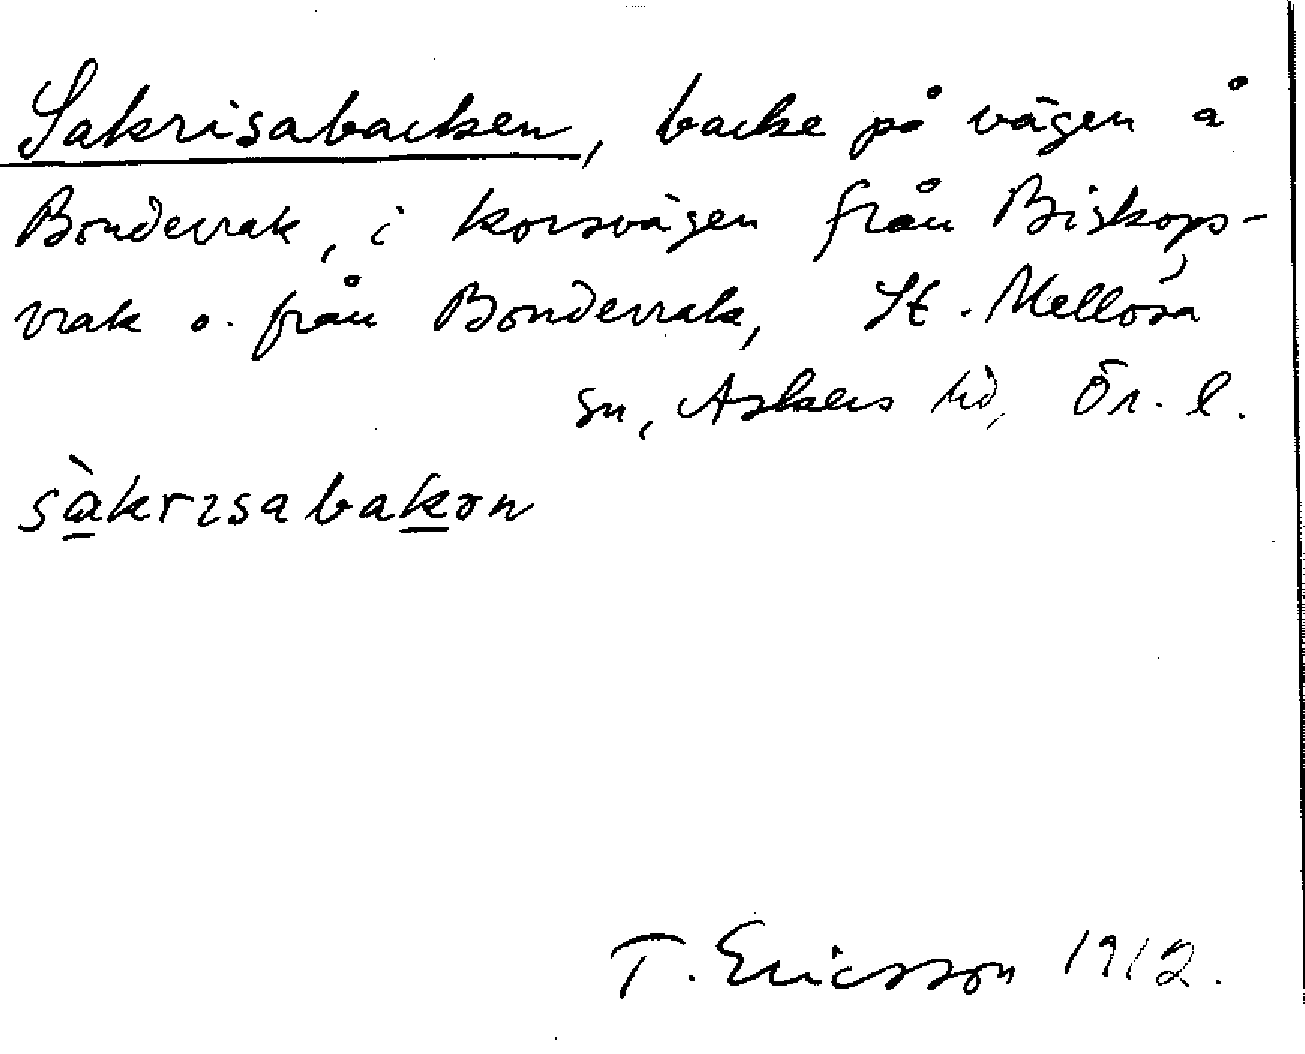 Sakrisabacken, backe på vägen å
Bondevrak, i korsvägen från Biskops-
vrak o. från Bondevrak, St. Mellösa
sn, Askers hd, Ör. l.
sàkrɩsabakən
T. Ericsson 1912.